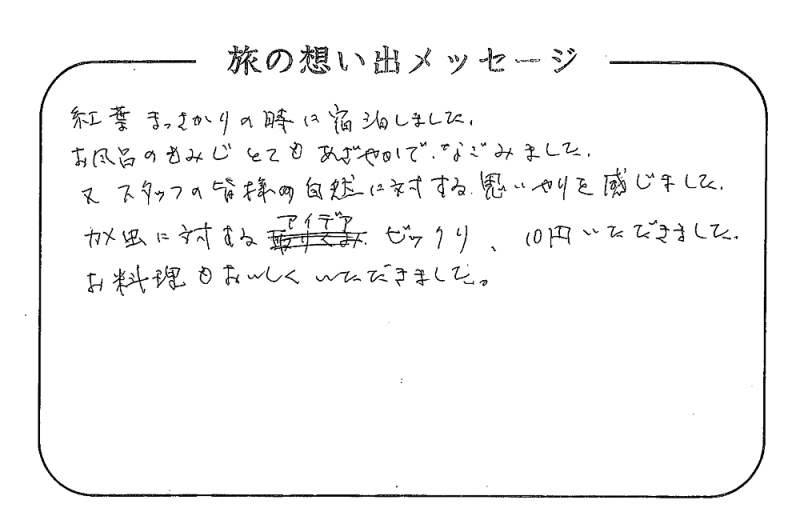 旅の想い出メッセージ
紅葉まっさかりの時に宿泊しました。
お風呂のもみじとてもあざやかで、なごみました。
又スタッフの皆様の自然に対する思いやりを感じました。
カメ虫に対するアイデアビックリ、10円いただきました。
お料理もおいしくいただきました。